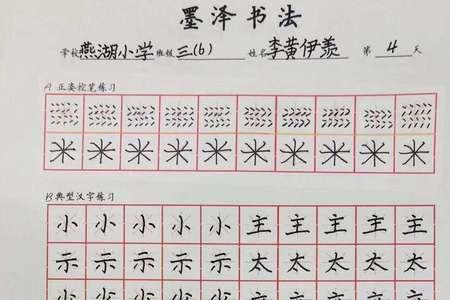 墨泽书法
学校 燕湖小学 班级 三(6) 姓名 李黄伊羡 第 4 天
A 正姿控笔练习
米 米 米 米 米 米 米 米 米 米
B 典型汉字练习
小 小 小 小 小 主 主 主 主 主
示 示 示 示 示 太 太 太 太 太